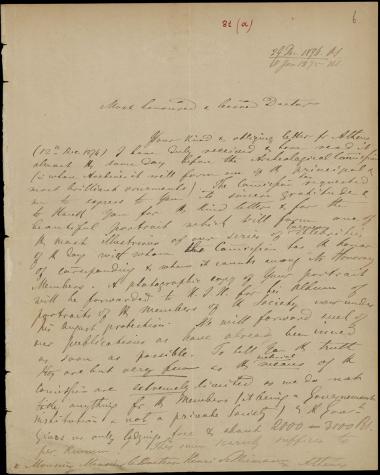 6
31 (a)
Most honoured & learned Doctor
Your kind & obliging letter fr. Athens
I have duly received & have read it
almost the same day before the Archaeological Commission
in whose Archive it will form one of the principal &
most brilliant ornaments! The Commission requested
me to express to You its sincere gratitude &
to thank You for the kind letter & for the
beautiful portrait which will form one of
the most illustrious of our series of celebrities
of the day with whom the Commission has the honor
of corresponding & whom it counts among its Honorary
Members. A photographic copy of Your portrait
will be forwarded to H.I.H. for his Album of
portraits of the members of the society now under
his august protection. We will forward all of
our publications as have already been issued
as soon as possible. To tell You the truth
they are but very few as the material means of the
Comission are extremely limited as we do not
anything fr. the Members (it being a Governement
institution & not a private society) & the Gov.
gives us only lodgings free & about 2000–3000 Rl.
per annum! This sum rarely suffices to
Athens